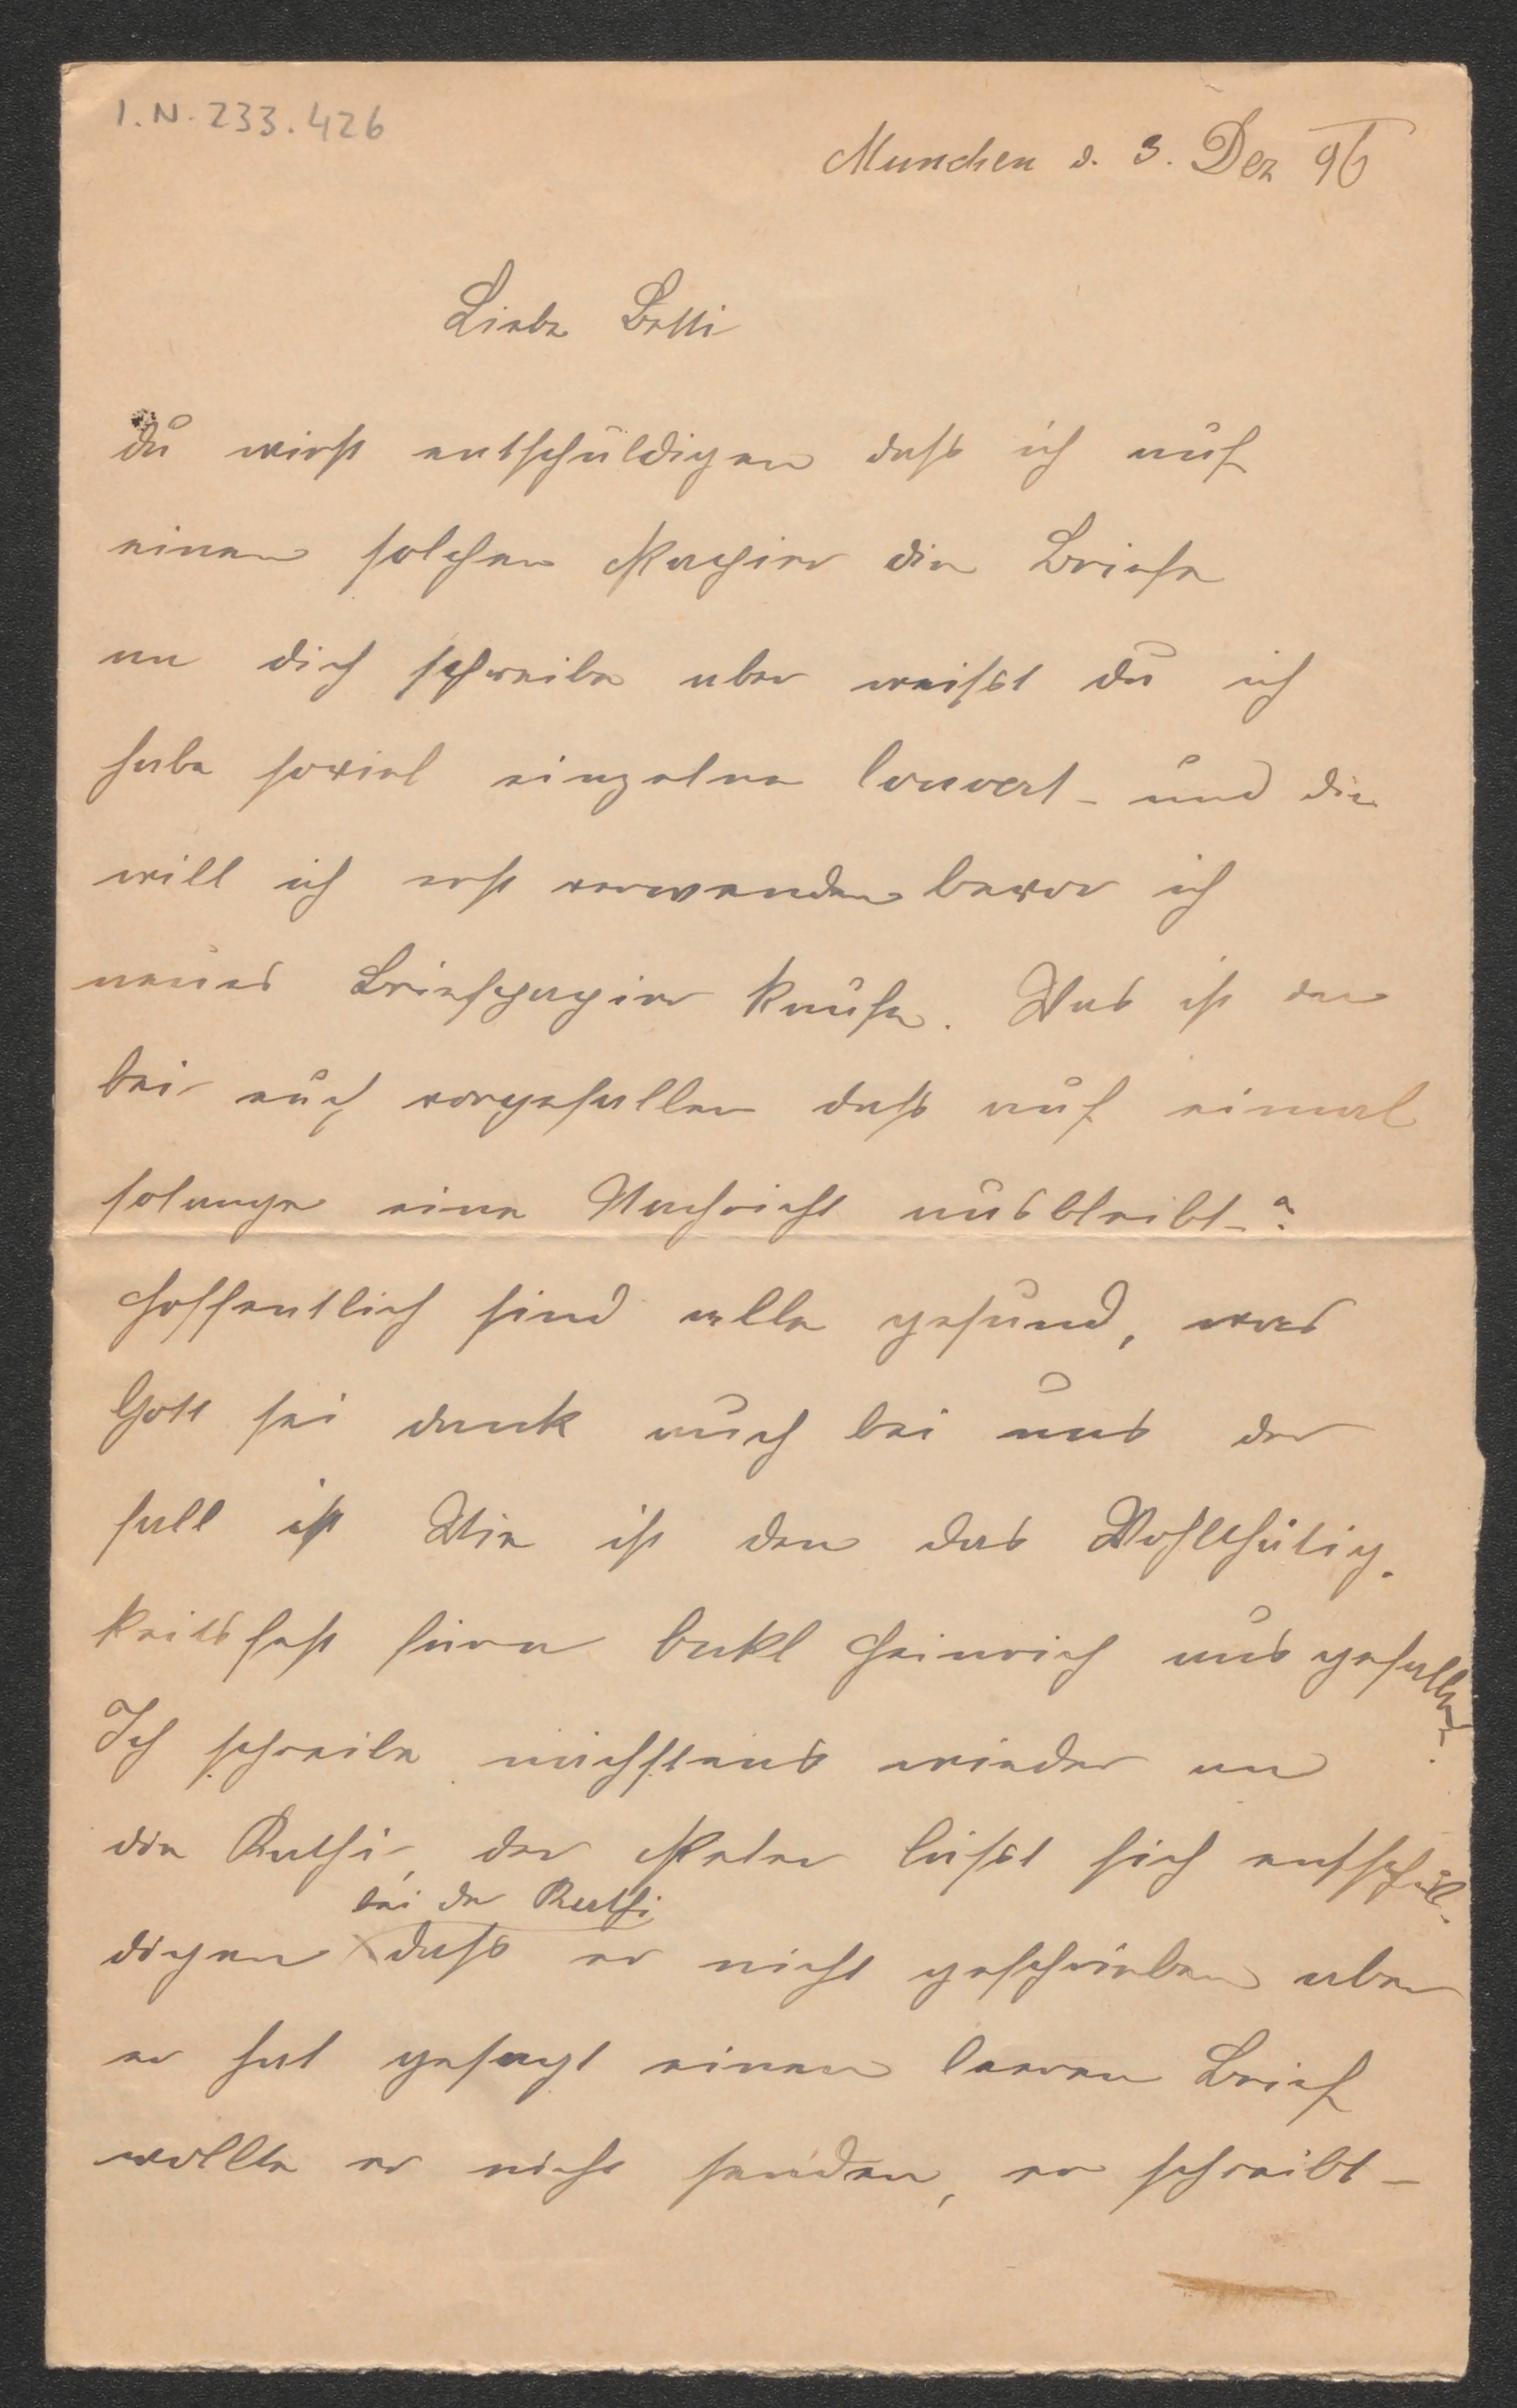 I.N. 233.426
Munchen d. 3. Dez 96
Liebe Betti
du wirst entschuldigen dass ich auf
einen solchen Papier die Briefe
an dich schreibe aber weisst du ich
habe soviel einzelne Couvert und die
will ich erst verwenden bevor ich
neues Briefpapier kaufe. Was ist den
bei euch vorgefallen dass auf eimal
solange eine Nachricht ausbleibt?
Hoffentlich sind alle gesund, was
Gott sei dank auch bei uns der
fall ist Wie ist den das Wohlthätig-
keitsfest Heinrich ausgefallen?
Ich schreibe nächstens wieder an
die Rathi, der Peter lässt sich entschul-
bei der Rathi
digen dass er nicht geschrieben aber
er hat gesagt einen leeren Brief
wollte er nicht senden, er schreibt